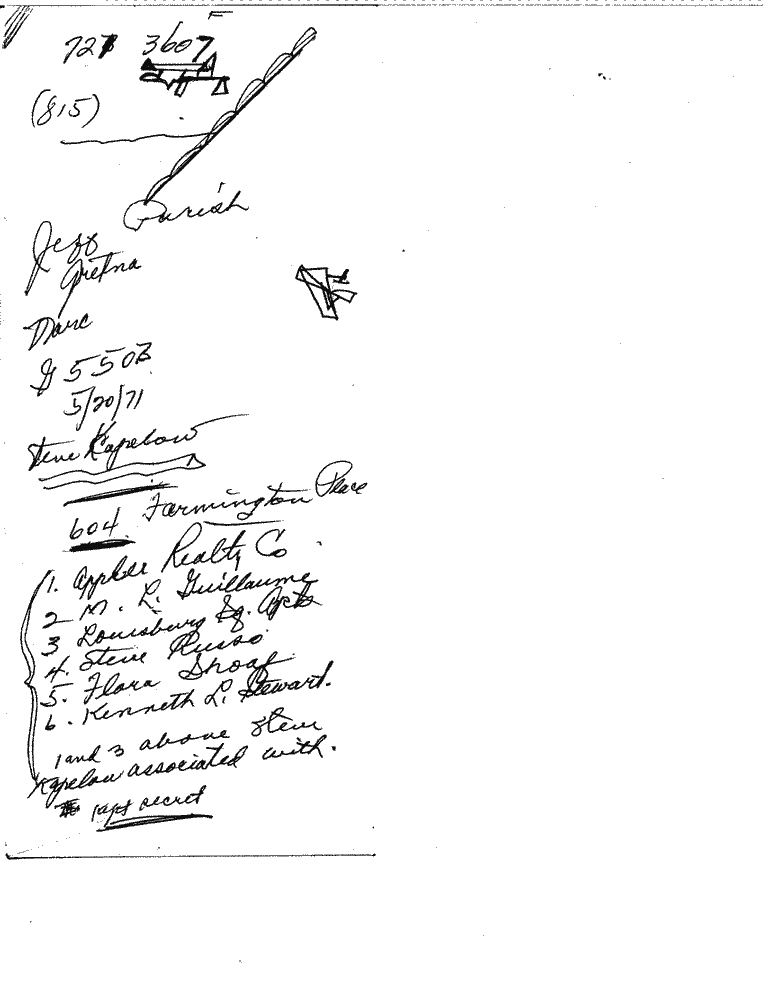 727 3607
(815)
Parish
Jeff
Gretna
5503
5/20/71
Steve Kapelow
604 Farmington Place
1. Apple Realty Co
2 M. L. Guillaume
3 Louisburg Sq. Apts
4. Steve Russo
5. Flora Shoaf
6. Kenneth L. Stewart.
1 and 3 above Steve
Kapelow associated with.
kept secret